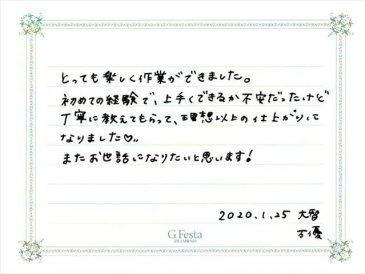 とっても楽しく作業ができました。
初めての経験で、上手くできるか不安だったけど
丁寧に教えてもらって、理想以上の仕上がりに
なりました♡。
またお世話になりたいと思います!
2020.1.25 大智
万優
G.Festa